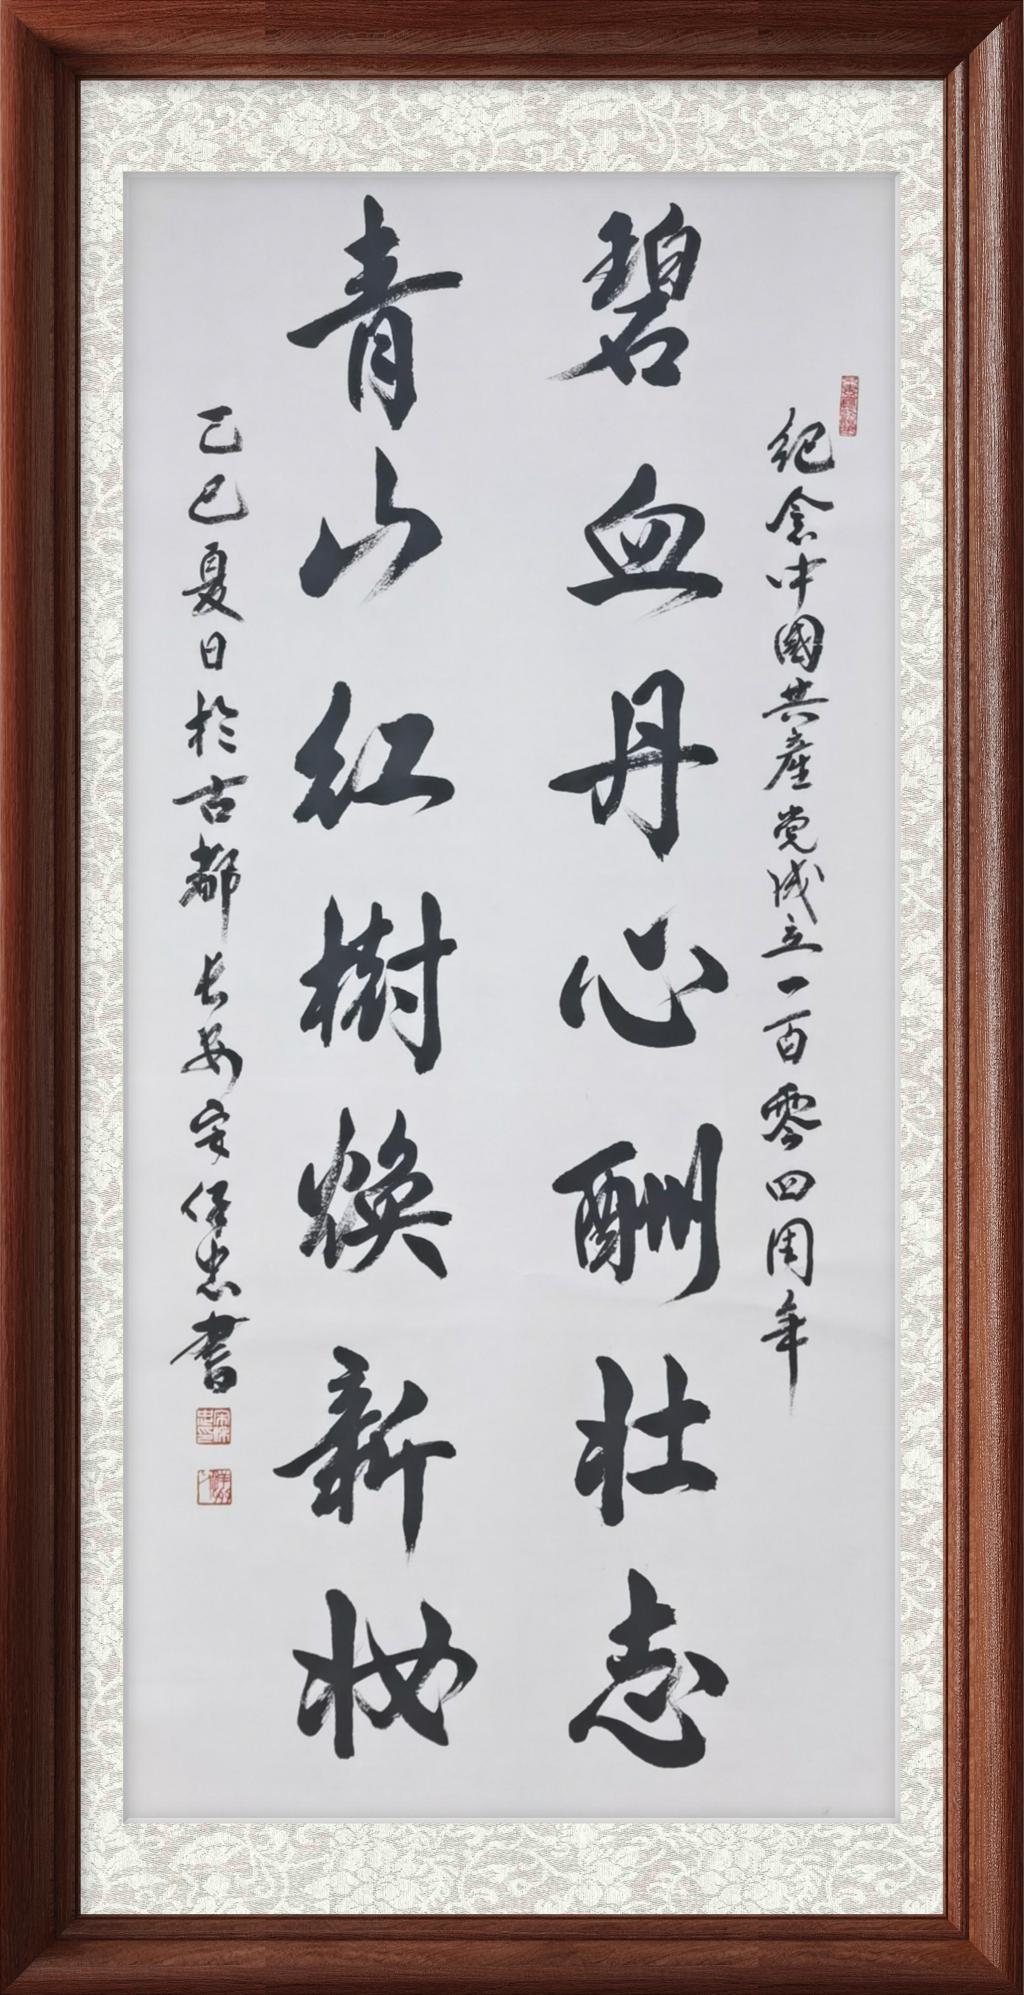 纪念中國共產党成立一百零四周年
碧血丹心酬壮志
青山红樹焕新妆
乙巳夏日於古都长安宋保忠書